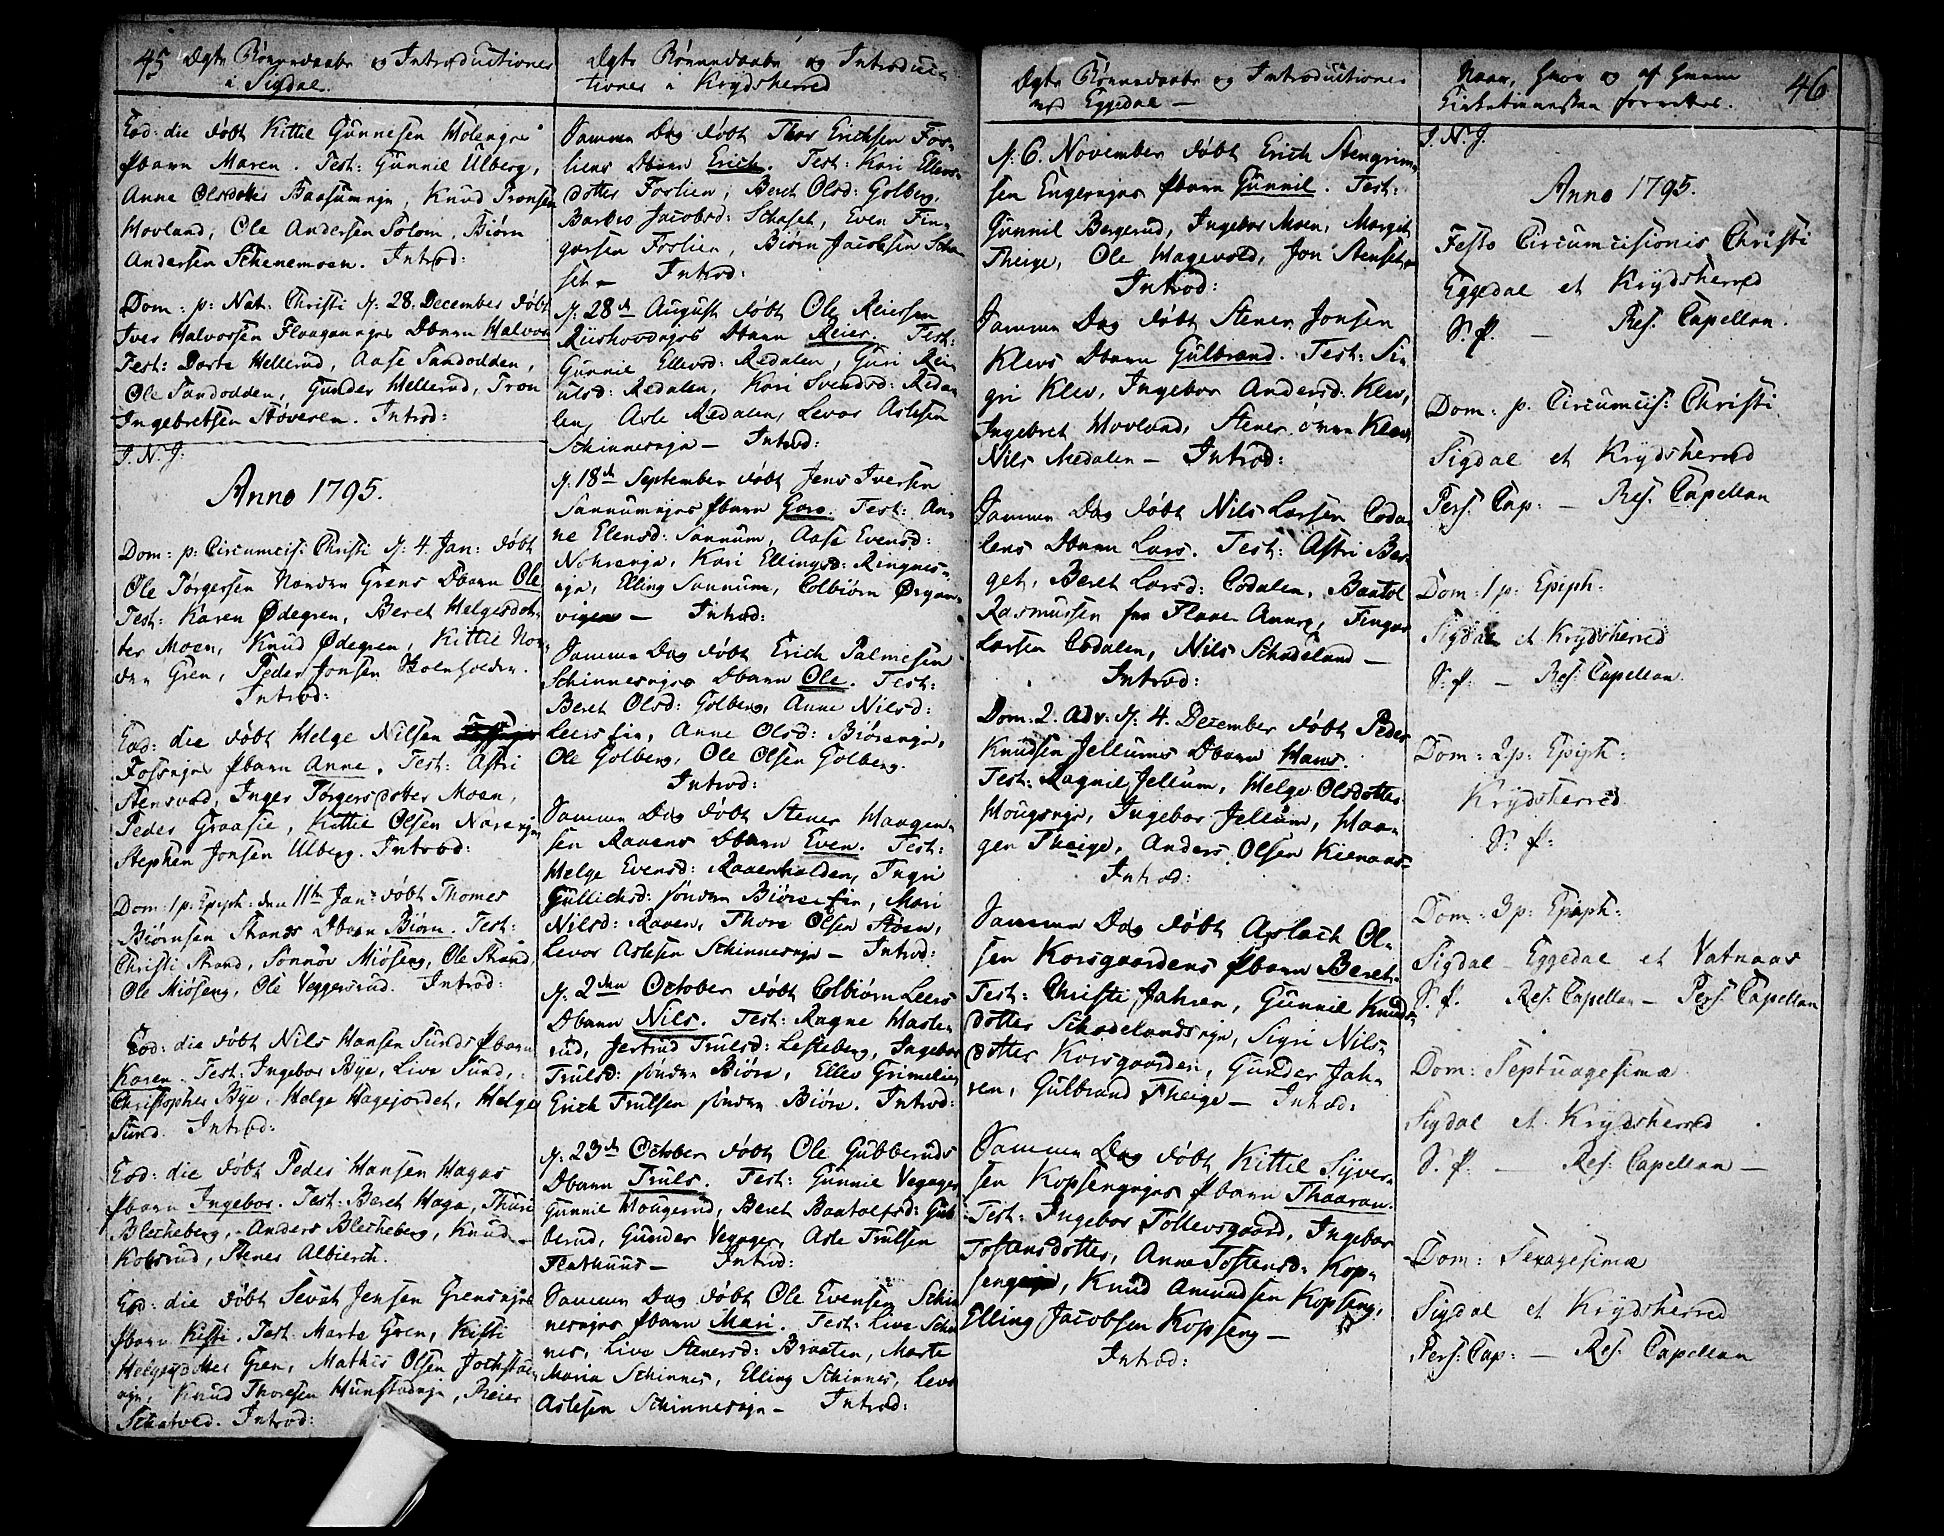 45 Ægte Bönnedaabe og Introductioner
i Sigdal.
Eod: die döbt Kittil Gunnesen Holengei
Pbarn Maren. Test: Gunnil Ulberg,
Anne Olsdotter Baasumeje, Knud Tronsen
Hovland, Ole Andersen Solom, Biörn
Andersen Schenemoen. Introd:
Dom: p: Nat: Christi d: 28. December döbt
Iver Halvorsen Flaagan Dbarn Halvor
Test: Dorte Hellerud, Aase Sandodden,
Ole Sandodden, Gunder Hellerud, Tron
Ingebretsen Støveren. Introd:
J. N. J.
Anno 1795.
Dom: p: Circumcis: Christi d: 4. Jan: döbt
Ole Torgersen Norden Grens Dbarn Ole
Test: Karen Ødegren, Beret Helgesdot-
ter Moen, Knud Ødegren, Kittil Nor-
den Gren, Peder Jonsen
Introd:
Eod: die döbt Helge Nilsen
Fossejes Pbarn Anne. Test: Astri
Stensvod, Inger Torgersdotter Moen,
Peder Graasie, Kittil Olsen
Stephen Jonsen Ulberg. Introd:
Dom: 1 p: Epiph: den 11te Jan: döbt Thomes
Biörnsen Strands Dbarn Biörn. Test:
Christi Strand, Sonnov Miöseng, Ole Strand,
Ole Miöseng, Ole Veggersrud. Introd:
Eod: die döbt Nils Hansen Sunds Pbarn
Karen. Test: Ingebor Bye, Live Sund,
Christopher Bye, Helge Hagejordet, Helge
Sund. Introd:
Eod: die döbt Peder Hansen Hagas
Pbarn Ingebor. Test: Beret Haga, Thuri
Blecheberg, Anders Blecheberg, Knud
Kolsrud, Stener Albierch.
Eod: die döbt Sevat Jensen Grensejes
Pbarn Kisti. Test: Marte Gren, Kisti
Helgesdotter Gren, Mathis Olsen
Knud Thoresen Hunstadeje, Reier
Schatvet. Introd:
Ægte Bönnedaabe og Introduc-
tioner i Krydsherred
Samme Dag döbt Thor Erichsen For-
liens Dbarn Erich. Test: Kari Ellevs-
dotter Forlien, Beret Olsd: Golberg,
Barbro Jacobsd: Schaset, Even Fin-
garsen Forlien, Biörn Jacobsen Scha-
set — Introd:
d: 28de August döbt Ole Reiersen
Riishovdejes Dbarn Reier. Test:
Gunnil Ellevsd: Redalen, Guri Rei-
ulsd: Redalen, Kari Svendsd: Reda-
len, Asle Redalen, Levor Aslesen
Schinneseje — Introd:
d: 18de September döbt Jens Iversen
Sannumejes Pbarn Goro. Test: An-
ne Elensd: Sannum, Aase Evensd:
Nohreeje, Kari Ellingsd: Ringnes-
eje, Elling Sannum, Colbiörn Ørgen-
vigen — Introd:
Samme Dag döbt Erich Palmesen
Schinnesejes Dbarn Ole. Test:
Beret Olsd: Golberg, Anne Nilsd:
Leersfin, Anne Olsd: Biöreeje,
Ole Golberg, Ole Olsen Golberg.
Introd:
Samme Dag döbt Stener Haagen-
sen Ravens Dbarn Even. Test:
Helge Evensd: Ravenhalden, Ingri
Gullichsd: sönden Biöre fin, Mari
Nilsd: Raven, Thore Olsen Støen,
Levor Aslesen Schinneseje — Introd:
d: 2den October döbt Colbiörn Leers
Dbarn Nils. Test: Ragne Haste-
rud, Jertrud Trulsd: Lesteberg, Ingebor
Trulsd: sönden Biöre, Ellev Grimelien
Erich Trulsen sönden Biöre. Introd:
d: 23de October döbt Ole Gubberuds
Dbarn Truls. Test: Gunnil Vegager
Gunnil Hougerud, Beret Baatolfsd: Gub-
berud, Gunder Vegager, Asle Trulsen
Flathuus — Introd:
Samme Dag döbt Ole Evensen Schin-
nesejes Pbarn Mari. Test: Live Schin-
nes, Live Stenersd: Braaten, Marte
Maria Schinnes, Elling Schinnes, Levor
Aslesen Schinneseje — Introd:
Ægte Bönnedaabe og Introductioner
ved Eggedal —
d: 6. November döbt Erich Stengrim-
sen Engerejes Pbarn Gunnil. Test:
Gunnil Bergerud, Ingebor Moen, Margit
Theige, Ole Hagevold, Jon Stenset
Introd:
Samme Dag döbt Stener Jonsen
Klevs Dbarn Gulbrand. Test: Si-
gri Klev, Ingebor Andersd: Klev,
Ingebret Hovland, Stener övre Klev,
Nils Medalen — Introd:
Samme Dag döbt Nils Larsen Coda-
lens Dbarn Lars. Test: Astri Ber-
get, Beret Larsd: Codalen, Baatol
Rasmussen fra Flaae Annex, Fingar
Larsen Codalen, Nils Schadeland —
Introd:
Dom: 2. Adv: d: 4. December döbt Peder
Knudsen Jellums Dbarn Hans.
Test: Ragnil Jellum, Helge Olsdotter
Hougseje, Ingebor Jellum, Haa-
gen Theige, Anders Olsen Kienaas—
Introd:
Samme Dag döbt Aslach Ol-
sen Korsgaardens Pbarn Beret.
Test: Christi Jahren, Gunnil Knuds-
dotter Schadelandseje, Sigri Nils-
dotter Korsgaarden, Gunder Jah-
ren, Gulbrand Theige — Introd:
Samme Dag döbt Kittil Syver-
sen Kopsengejes Pbarn Thaaran.
Test: Ingebor Tollevsgaard, Ingebor
Tostensdotter, Anne Tostensd: Kop-
seng, Knud Amundsen Kopseng,
Elling Jacobsen Kopseng —
Introd:
Naar, Hvor og af Hvem 46
Kirketienesten forrettes.
J. N. J.
Anno 1795.
Festo Circumcisionis Christi
Eggedal et Krydsherred
S. P. — Res. Capellan.
Dom: p. Circumcis: Christi
Sigdal et Krydsherred
Pers. Cap: — Res. Capellan
Dom: 1 p: Epiph:
Sigdal et Krydsherred
S. P. — Res. Capellan.
Dom: 2 p: Epiph:
Krydsherred
S. P:
Dom: 3 p: Epiph:
Sigdal Eggedal et Vatnaas
S. P. Res. Capellan — Pers. Capellan
Dom: Septuagesimæ
Sigdal et Krydsherred
S. P. — Res. Capellan —
Dom: Sexagesimæ
Sigdal et Krydsherred
Pers. Cap: — Res. Capellan